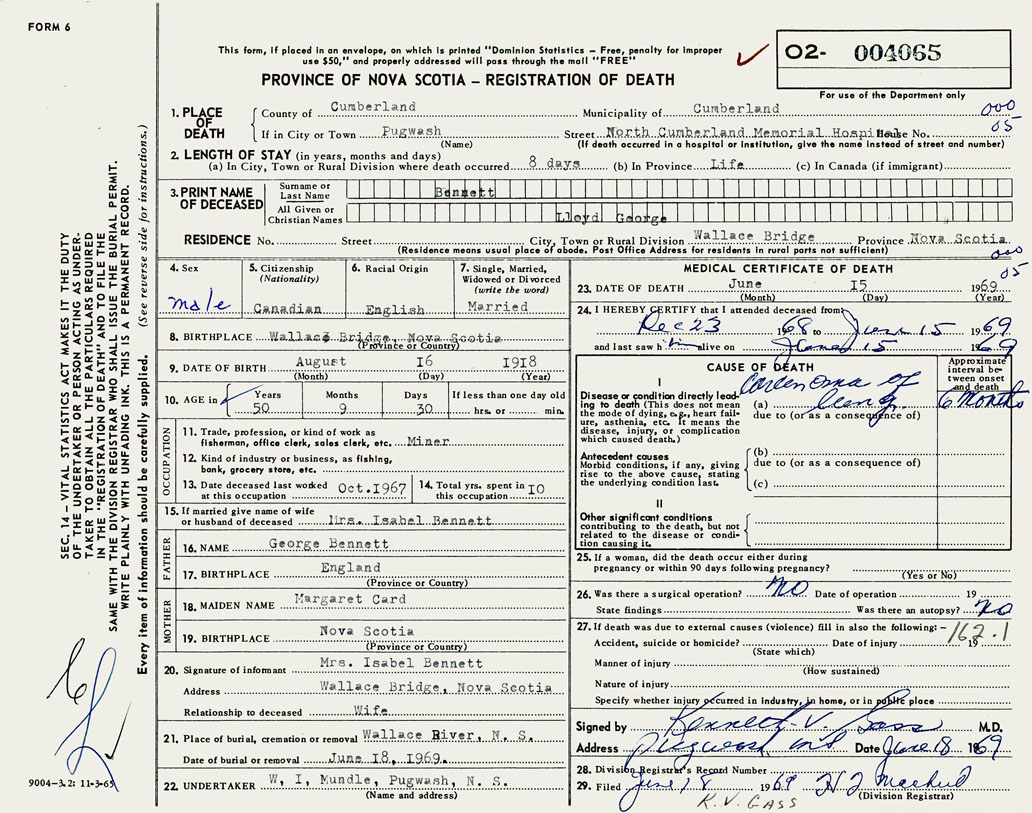 FORM 6
This form, if placed in an envelope, on which is printed "Dominion Statistics – Free, penalty for improper
use $50," and properly addressed will pass through the mail "FREE"
PROVINCE OF NOVA SCOTIA – REGISTRATION OF DEATH
02- 004065
For use of the Department only
000
05
1. PLACE OF DEATH
County of Cumberland Municipality of Cumberland
If in City or Town Pugwash Street North Cumberland Memorial Hospital House No.
(Name) (If death occurred in a hospital or institution, give the name instead of street and number)
2. LENGTH OF STAY (in years, months and days)
(a) In City, Town or Rural Division where death occurred 8 days (b) In Province Life (c) In Canada (if immigrant)
3. PRINT NAME OF DECEASED
Surname or Last Name Bennett
All Given or Christian Names Lloyd George
RESIDENCE No. Street City, Town or Rural Division Wallace Bridge Province Nova Scotia
(Residence means usual place of abode. Post Office Address for residents in rural parts not sufficient)
000
05
4. Sex male
5. Citizenship (Nationality) Canadian
6. Racial Origin English
7. Single, Married, Widowed or Divorced (write the word) Married
8. BIRTHPLACE Wallace Bridge, Nova Scotia
(Province or Country)
9. DATE OF BIRTH August 16 1918
(Month) (Day) (Year)
10. AGE in Years Months Days If less than one day old
50 9 30 hrs. or min.
OCCUPATION
11. Trade, profession, or kind of work as
fisherman, office clerk, sales clerk, etc. Miner
12. Kind of industry or business, as fishing,
bank, grocery store, etc.
13. Date deceased last worked at this occupation Oct.1967
14. Total yrs. spent in this occupation 10
15. If married give name of wife
or husband of deceased Mrs. Isabel Bennett
FATHER
16. NAME George Bennett
17. BIRTHPLACE England
(Province or Country)
MOTHER
18. MAIDEN NAME Margaret Card
19. BIRTHPLACE Nova Scotia
(Province or Country)
20. Signature of informant Mrs. Isabel Bennett
Address Wallace Bridge, Nova Scotia
Relationship to deceased Wife
21. Place of burial, cremation or removal Wallace River, N. S.
Date of burial or removal June 18, 1969.
22. UNDERTAKER W, I, Mundle, Pugwash, N. S.
(Name and address)
MEDICAL CERTIFICATE OF DEATH
23. DATE OF DEATH June 15 1969
(Month) (Day) (Year)
24. I HEREBY CERTIFY that I attended deceased from
Dec 23 1968 to June 15 1969
and last saw him alive on June 15 1969
CAUSE OF DEATH
Approximate interval between onset and death
I
Disease or condition directly leading to death (This does not
mean the mode of dying, e.g., heart failure, asthenia, etc. It means the
disease, injury, or complication
which caused death.)
(a) Carcinoma of lung 6 months
due to (or as a consequence of)
Antecedent causes
Morbid conditions, if any, giving
rise to the above cause, stating
the underlying condition last.
(b)
due to (or as a consequence of)
(c)
II
Other significant conditions
contributing to the death, but not
related to the disease or condition causing it.
25. If a woman, did the death occur either during
pregnancy or within 90 days following pregnancy?
(Yes or No)
26. Was there a surgical operation? NO Date of operation 19
State findings Was there an autopsy? NO
27. If death was due to external causes (violence) fill in also the following: –
162.1
Accident, suicide or homicide? Date of injury 19
(State which)
Manner of injury
(How sustained)
Nature of injury
Specify whether injury occurred in industry, in home, or in public place
Signed by Kenneth V. Gass M.D.
Address Pugwash NS Date June 18 1969
28. Division Registrar's Record Number
29. Filed June 18 1969
(Division Registrar)
K.V. GASS
SEC. 14 – VITAL STATISTICS ACT MAKES IT THE DUTY
OF THE UNDERTAKER OR PERSON ACTING AS UNDER-
TAKER TO OBTAIN ALL THE PARTICULARS REQUIRED
IN THE "REGISTRATION OF DEATH" AND TO FILE THE
SAME WITH THE DIVISION REGISTRAR WHO SHALL ISSUE THE BURIAL PERMIT.
WRITE PLAINLY WITH UNFADING INK. THIS IS A PERMANENT RECORD.
Every item of information should be carefully supplied. (See reverse side for instructions.)
9004–3.2: 11-3-65